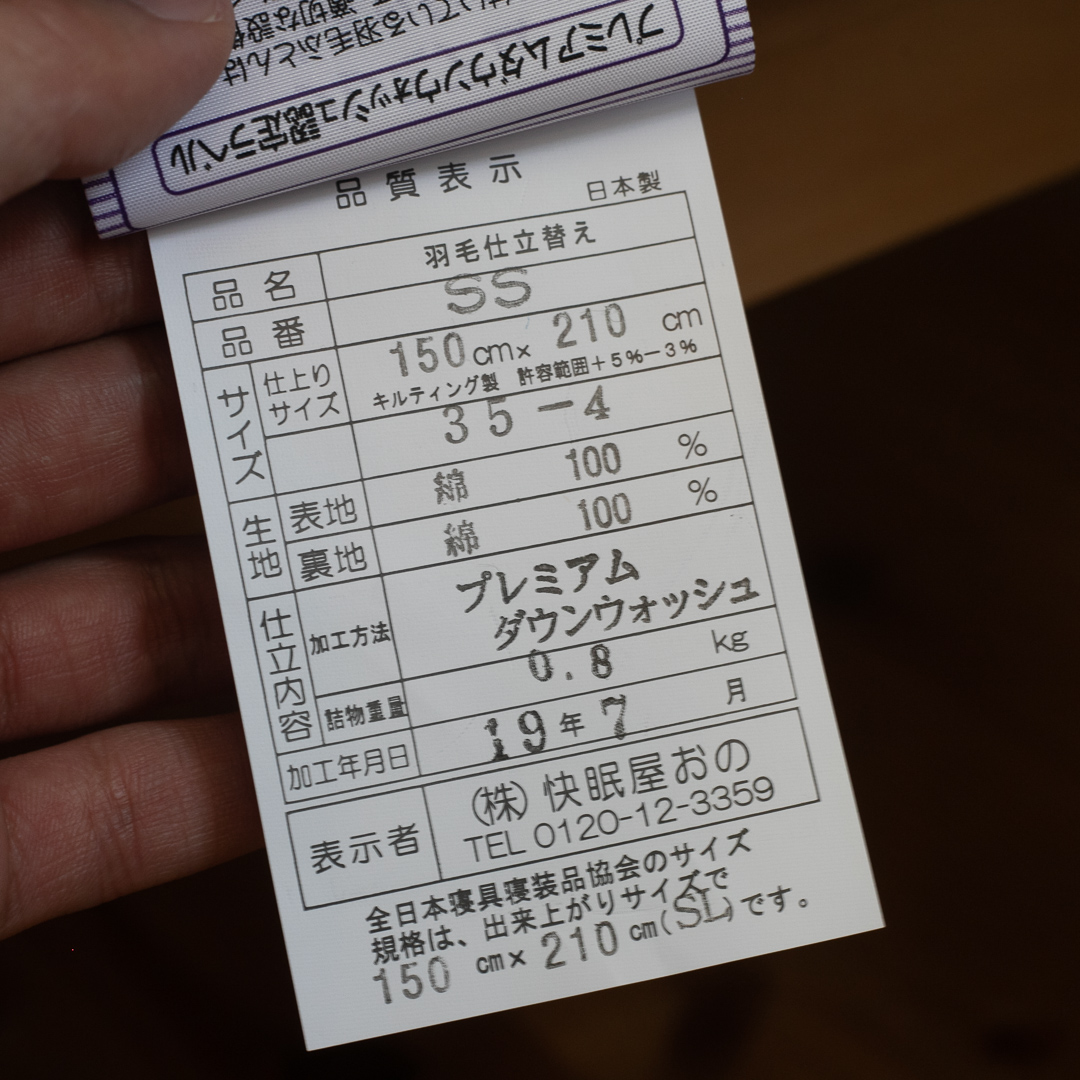 いている羽毛ふとんは
適切な設
プレミアムダウンウォッシュ認定ラベル
品質表示
日本製
品名 羽毛仕立替え
品番 SS
サイズ 仕上りサイズ 150cm× 210 cm
キルティング製 許容範囲+5%-3%
35-4
生地 表地 綿 100 %
裏地 綿 100 %
仕立内容 加工方法 プレミアム
ダウンウォッシュ
詰物重量 0.8 kg
加工年月日 19年 7 月
表示者 (株)快眠屋おの
TEL 0120-12-3359
全日本寝具寝装品協会のサイズ
規格は、出来上がりサイズで
150 cm× 210 cm(SL)です。